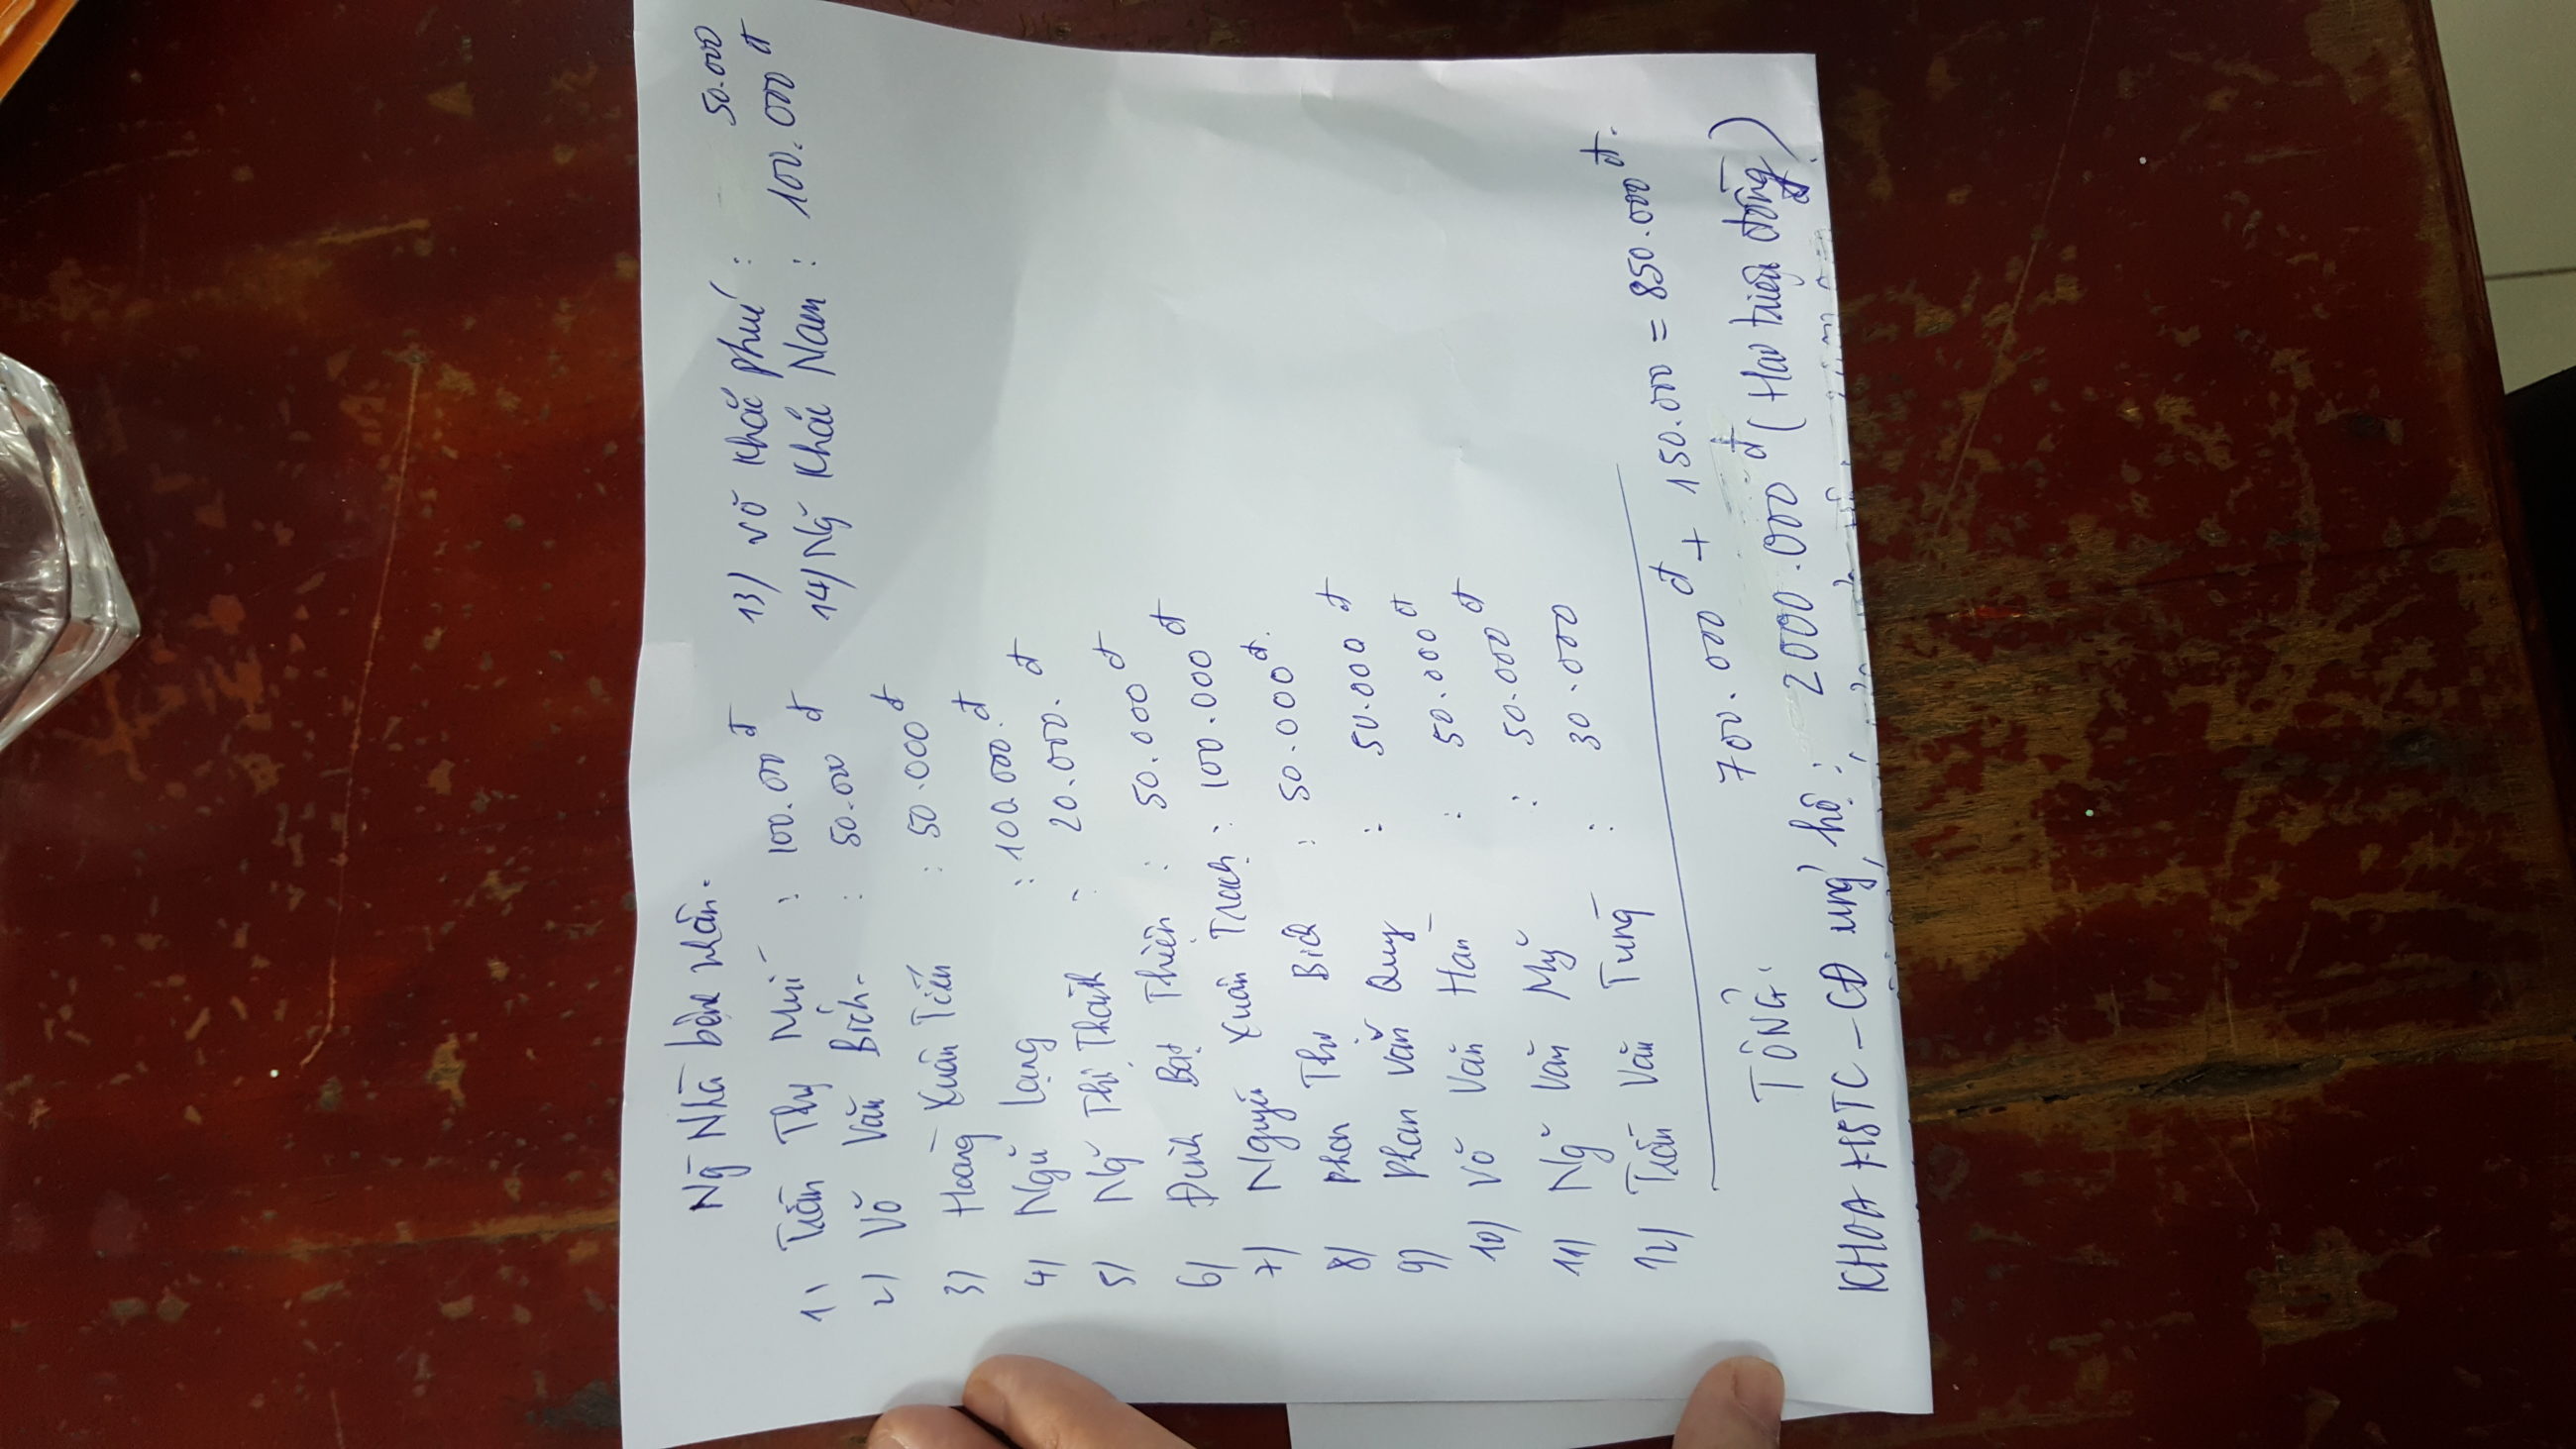 Ng̃ Nhà bệnh nhân.
1) Trần Thị Mùi : 100.000đ
2) Võ Văn Bích. : 50.000 đ
3) Hoàng Xuân Tiến : 50.000đ
4) Ngũ Lạng : 100.000.đ
5) Ng̃ Thị Thành : 20.000. đ
6) Đinh Bạt Thiện : 50.000đ
7) Nguyễn Xuân Trạch : 100.000 đ
8) phan Thị Bích : 50.000đ.
9) phan văn Quy : 50.000 đ
10) Võ Văn Hàn : 50.000đ
11) Ng̃ Văn Mỹ : 50.000đ
12) Trần Văn Tùng : 30.000
13) võ khắc phú : 50.000
14) Ng̃ Khắc Nam : 100.000đ
TỔNG: 700.000đ + 150.000 = 850.000đ.
KHOA HSTC - CĐ ủng hộ : 2000.000đ (Hai triệu đồng)